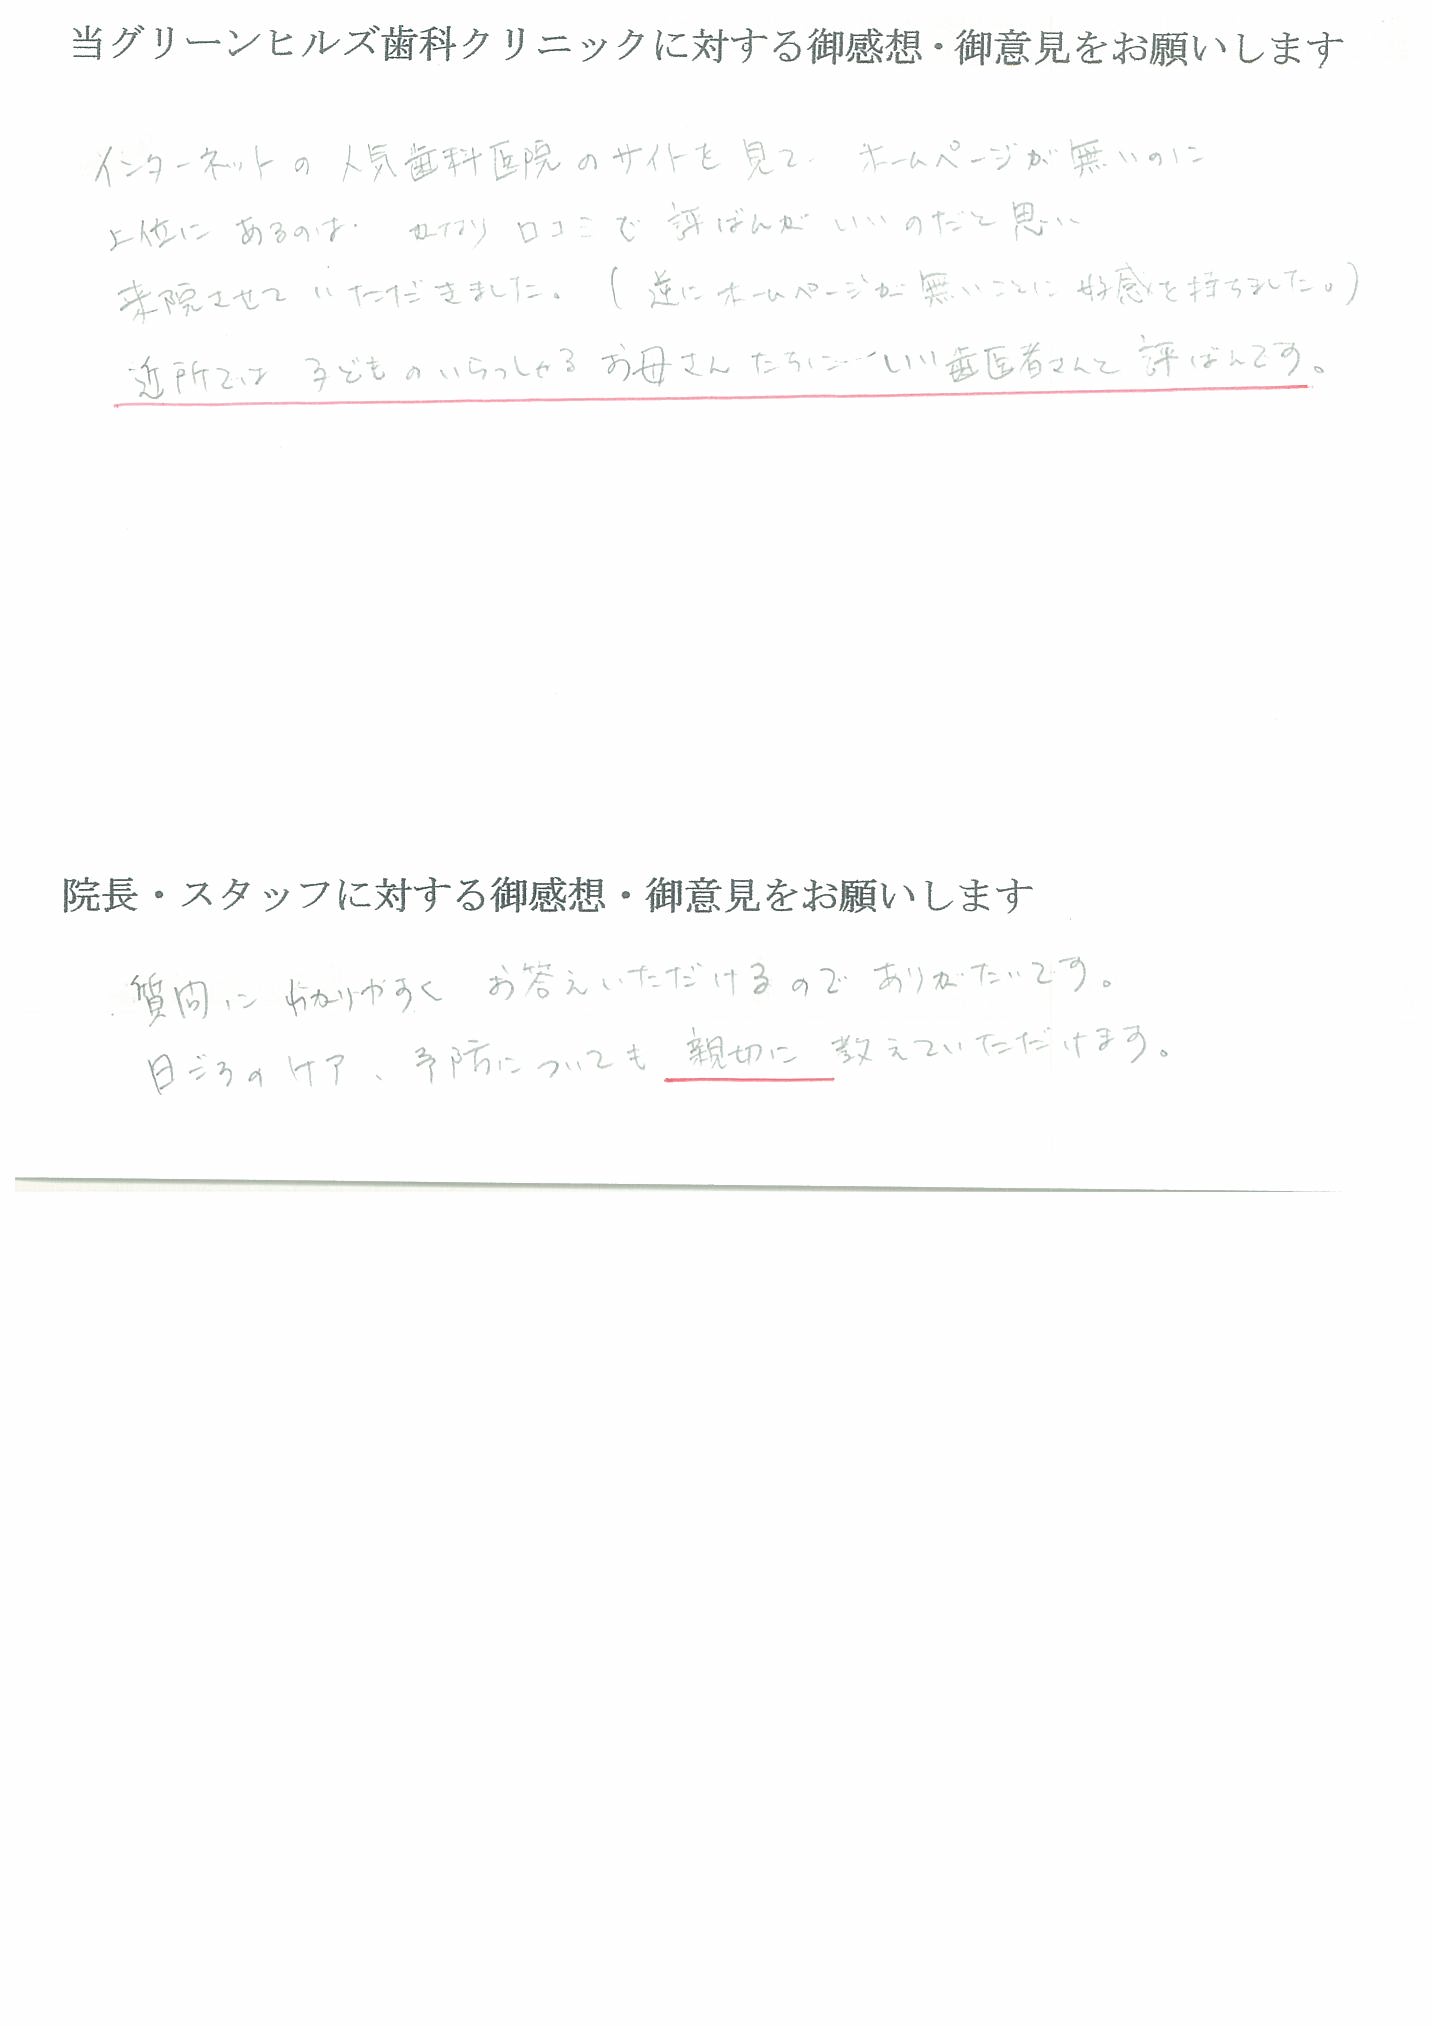 当グリーンヒルズ歯科クリニックに対する御感想・御意見をお願いします
インターネットの人気歯科医院のサイトを見て、ホームページが無いのに
上位にあるのは、かなり口コミで評ばんがいいのだと思い
来院させていただきました。(逆にホームページが無いことに好感を持ちました。)
近所では子どものいらっしゃるお母さんたちにいい歯医者さんと評ばんです。
院長・スタッフに対する御感想・御意見をお願いします
質問にわかりやすくお答えいただけるのでありがたいです。
日ごろのケア、予防についても親切に教えていただけます。